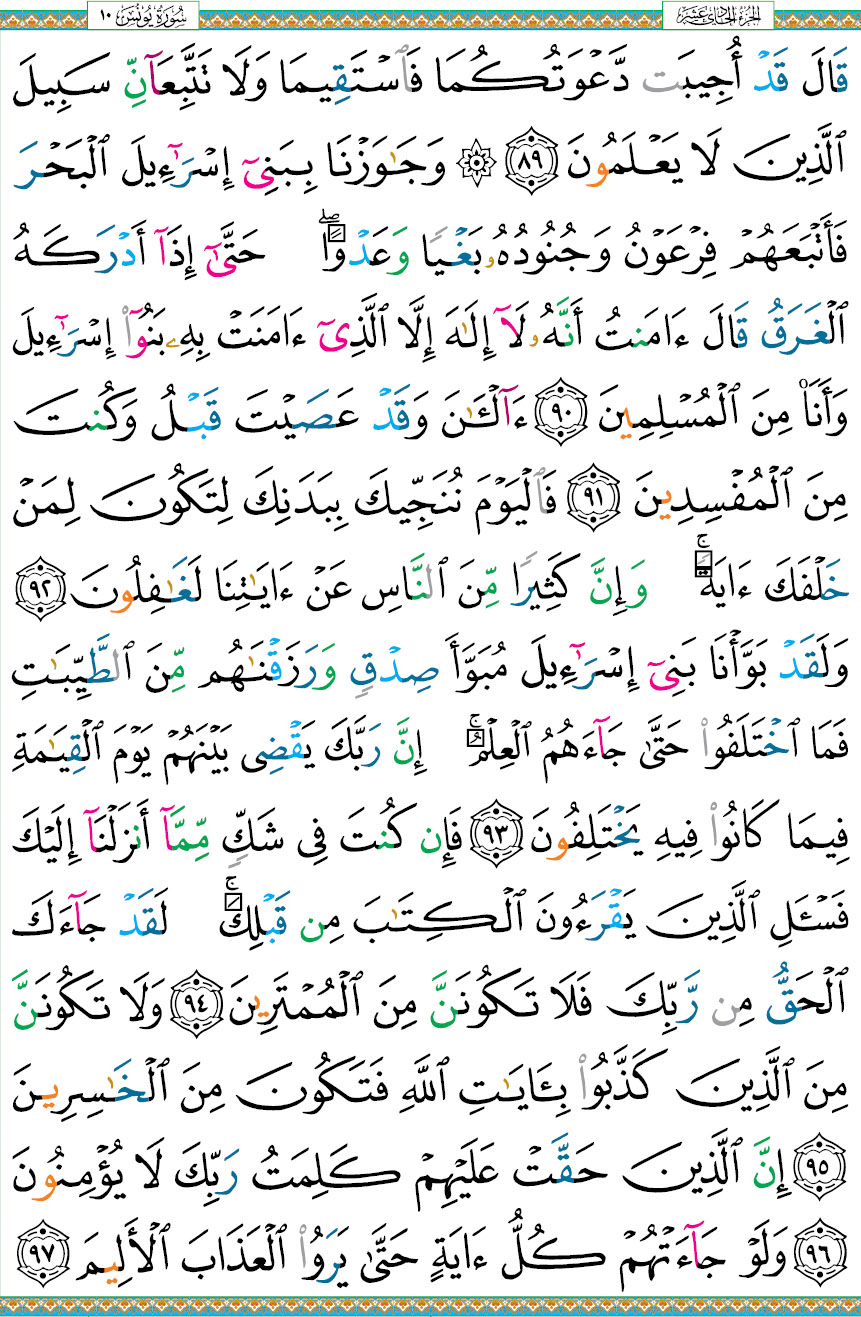 الجزء الحادي عشر
سُورَةُ يُونُس ١٠
قَالَ قَدْ أُجِيبَت دَّعْوَتُكُمَا فَٱسْتَقِيمَا وَلَا تَتَّبِعَآنِّ سَبِيلَ
ٱلَّذِينَ لَا يَعْلَمُونَ ٨٩ ۞ وَجَٰوَزْنَا بِبَنِىٓ إِسْرَٰٓءِيلَ ٱلْبَحْرَ
فَأَتْبَعَهُمْ فِرْعَوْنُ وَجُنُودُهُۥ بَغْيًا وَعَدْوًا ۖ حَتَّىٰٓ إِذَآ أَدْرَكَهُ
ٱلْغَرَقُ قَالَ ءَامَنتُ أَنَّهُۥ لَآ إِلَٰهَ إِلَّا ٱلَّذِىٓ ءَامَنَتْ بِهِۦ بَنُوٓا۟ إِسْرَٰٓءِيلَ
وَأَنَا۠ مِنَ ٱلْمُسْلِمِينَ ٩٠ ءَآلْـَٰٔنَ وَقَدْ عَصَيْتَ قَبْلُ وَكُنتَ
مِنَ ٱلْمُفْسِدِينَ ٩١ فَٱلْيَوْمَ نُنَجِّيكَ بِبَدَنِكَ لِتَكُونَ لِمَنْ
خَلْفَكَ ءَايَةً ۚ وَإِنَّ كَثِيرًا مِّنَ ٱلنَّاسِ عَنْ ءَايَٰتِنَا لَغَٰفِلُونَ ٩٢
وَلَقَدْ بَوَّأْنَا بَنِىٓ إِسْرَٰٓءِيلَ مُبَوَّأَ صِدْقٍ وَرَزَقْنَٰهُم مِّنَ ٱلطَّيِّبَٰتِ
فَمَا ٱخْتَلَفُوا۟ حَتَّىٰ جَآءَهُمُ ٱلْعِلْمُ ۚ إِنَّ رَبَّكَ يَقْضِى بَيْنَهُمْ يَوْمَ ٱلْقِيَٰمَةِ
فِيمَا كَانُوا۟ فِيهِ يَخْتَلِفُونَ ٩٣ فَإِن كُنتَ فِى شَكٍّ مِّمَّآ أَنزَلْنَآ إِلَيْكَ
فَسْـَٔلِ ٱلَّذِينَ يَقْرَءُونَ ٱلْكِتَٰبَ مِن قَبْلِكَ ۚ لَقَدْ جَآءَكَ
ٱلْحَقُّ مِن رَّبِّكَ فَلَا تَكُونَنَّ مِنَ ٱلْمُمْتَرِينَ ٩٤ وَلَا تَكُونَنَّ
مِنَ ٱلَّذِينَ كَذَّبُوا۟ بِـَٔايَٰتِ ٱللَّهِ فَتَكُونَ مِنَ ٱلْخَٰسِرِينَ
٩٥ إِنَّ ٱلَّذِينَ حَقَّتْ عَلَيْهِمْ كَلِمَتُ رَبِّكَ لَا يُؤْمِنُونَ
٩٦ وَلَوْ جَآءَتْهُمْ كُلُّ ءَايَةٍ حَتَّىٰ يَرَوُا۟ ٱلْعَذَابَ ٱلْأَلِيمَ ٩٧